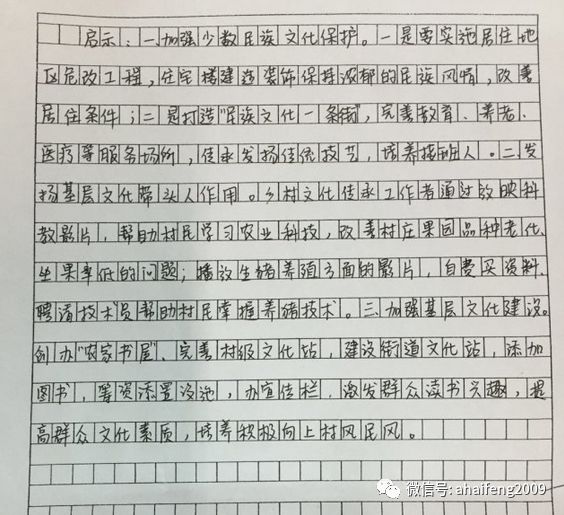 启示：一、加强少数民族文化保护。一是要实施居住地
区危改工程，住宅搭建造装饰保持浓郁的民族风情，改善
居住条件；二是打造“民族文化一条街”，完善教育、养老、
医疗等服务场所，传承发扬传统技艺，培养接班人。二、发
扬基层文化带头人作用。乡村文化传承工作者通过放映科
教影片，帮助村民学习农业科技，改善村庄果园品种老化、
坐果率低的问题；播放生猪养殖方面的影片，自费买资料、
聘请技术员帮助村民掌握养猪技术。三、加强基层文化建设。
创办“农家书屋”、完善村级文化站，建设街道文化站，添加
图书，筹资添置设施，办宣传栏，激发群众读书兴趣，提
高群众文化素质，培养积极向上村风民风。
微信号: ahaifeng2009